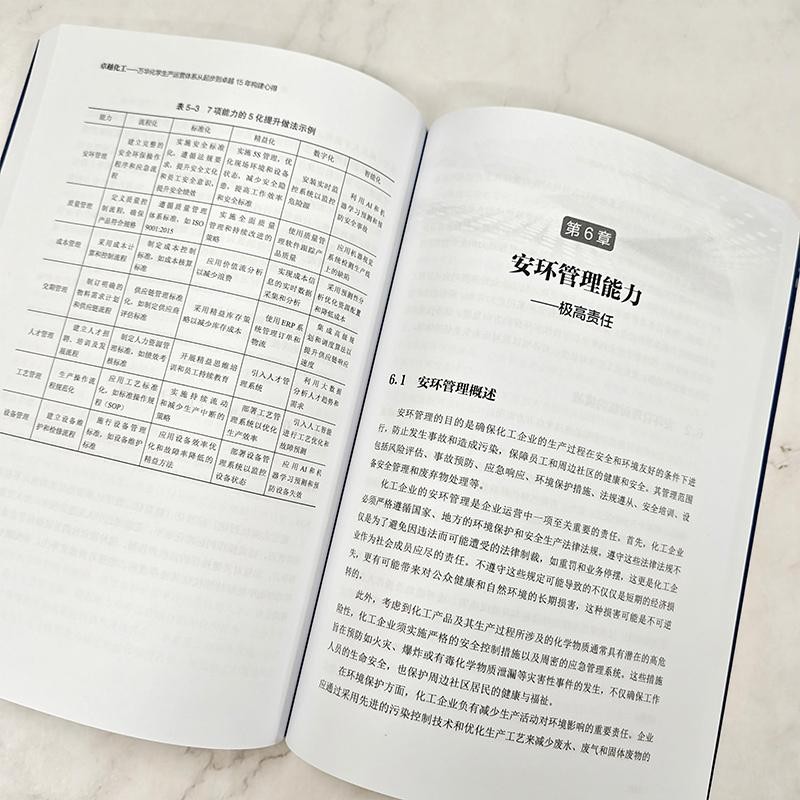 卓越化工——万华化学生产运营体系从起步到卓越 15 年构建心得
表 5-3 7 项能力的 5 化提升做法示例
能力 流程化 标准化 精益化 数字化 智能化
安环管理
建立完整的
安全环保操作
程序和应急流
程
实施安全标准
化，遵循法规要
求，提升安全文化
和员工安全意识，
提升安全绩效
实施 5S 管理，优
化现场环境和设备
状态，减少安全隐
患，提高工作效率
和安全标准
安装实时监
控系统以监控
危险源
利用 AI 和机
器学习预测和预
防安全事故
质量管理
定义质量控
制流程，确保
产品符合规格
遵循质量管理
体系标准，如 ISO
9001:2015
实施全面质量
管理和持续改进的
策略
使用质量管
理软件跟踪产
品质量
应用机器视觉
系统检测生产线
上的缺陷
成本管理
采用成本计
算和控制流程
制定成本控制
标准，如成本核算
标准
应用价值流分析
以减少浪费
实现成本信
息的实时数据
采集和分析
采用预测性分
析优化资源配置
和降低成本
交期管理
制订明确的
物料需求计划
和供应链流程
供应链管理标准
化，如制定供应商
评估标准
采用精益库存策
略以减少库存成本
使用 ERP 系
统管理订单和
物流
集成高级规
划和调度算法以
提升供应链响应
速度
人才管理
建立人才招
聘、培训及发
展流程
制定人力资源管
理标准，如绩效考
核标准
开展精益思维培
训和员工持续教育
引入人才管
理系统
利用大数据
分析人才趋势和
需求
工艺管理
生产操作流
程规范化
应用工艺标准
化，如标准操作规
程（SOP）
实施持续流动
和减少生产中断的
策略
部署工艺管
理系统以优化
生产效率
引入人工智能
进行工艺优化和
故障预测
设备管理
建立设备维
护和检修流程
施行设备管理
标准，如设备维护
标准
应用设备效率优
化和故障率降低的
精益方法
部署设备管
理系统以监控
设备状态
应用 AI 和机
器学习预测和预
防设备失效
第 6 章
安环管理能力
——极高责任
6.1 安环管理概述
安环管理的目的是确保化工企业的生产过程在安全和环境友好的条件下进
行，防止发生事故和造成污染，保障员工和周边社区的健康和安全。其管理范围
包括风险评估、事故预防、应急响应、环境保护措施、法规遵从、安全培训、设
备安全管理和废弃物处理等。
化工企业的安环管理是企业运营中一项至关重要的责任。首先，化工企业
必须严格遵循国家、地方的环境保护和安全生产法律法规。遵守这些法律法规不
仅是为了避免因违法而可能遭受的法律制裁，如重罚和业务停摆，这更是化工企
业作为社会成员应尽的责任。不遵守这些规定可能导致的不仅仅是短期的经济损
失，更有可能带来对公众健康和自然环境的长期损害，这种损害可能是不可逆
转的。
此外，考虑到化工产品及其生产过程所涉及的化学物质通常具有潜在的高危
险性，化工企业须实施严格的安全控制措施以及周密的应急管理系统。这些措施
旨在预防如火灾、爆炸或有毒化学物质泄漏等灾害性事件的发生，不仅确保工作
人员的生命安全，也保护周边社区居民的健康与福祉。
在环境保护方面，化工企业负有减少生产活动对环境影响的重要责任。企业
应通过采用先进的污染控制技术和优化生产工艺来减少废水、废气和固体废物的